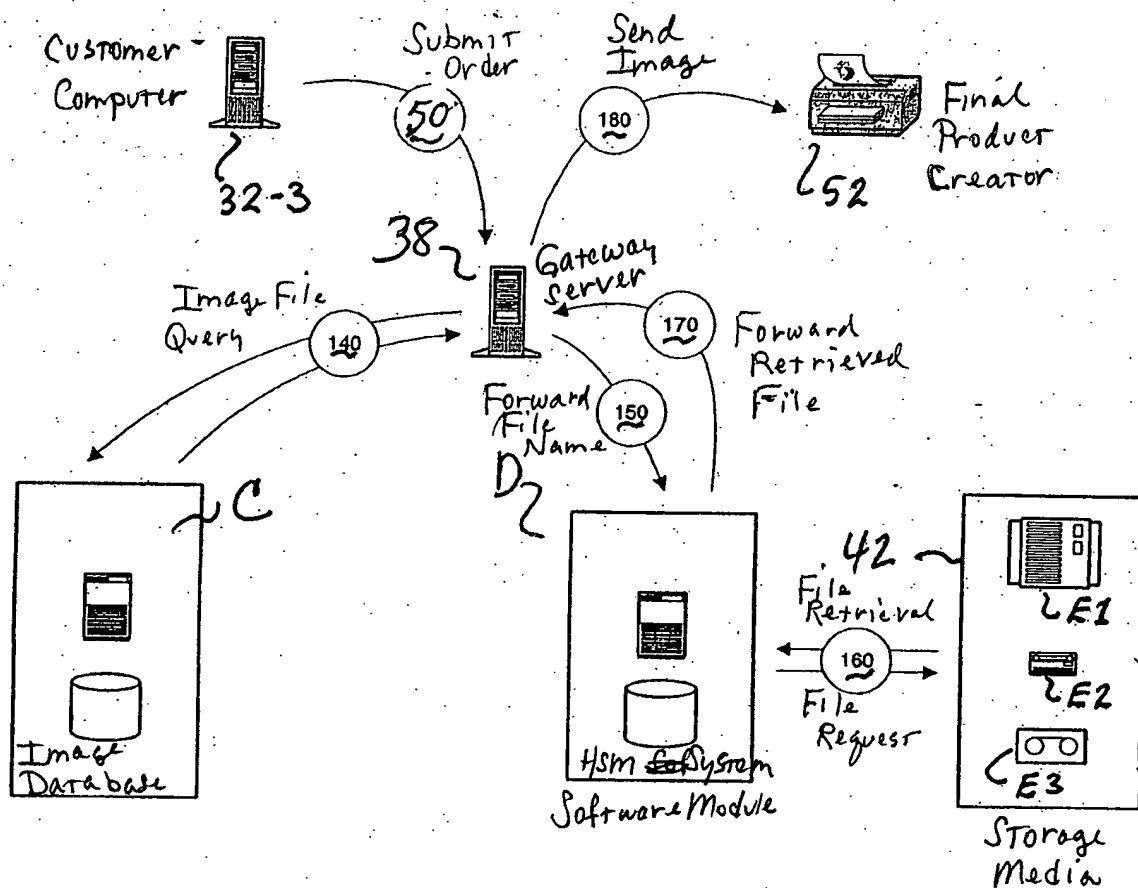 Customer
Computer
32-3
Submit
Order
50
Send
Image
180
Final
Product
Creator
52
38
Gateway
server
Image File
Query
140
Forward
File
Name
150
170
Forward
Retrieved
File
C
Image
Database
D
HSM System
Software Module
File
Retrieval
160
File
Request
42
E1
E2
E3
Storage
Media